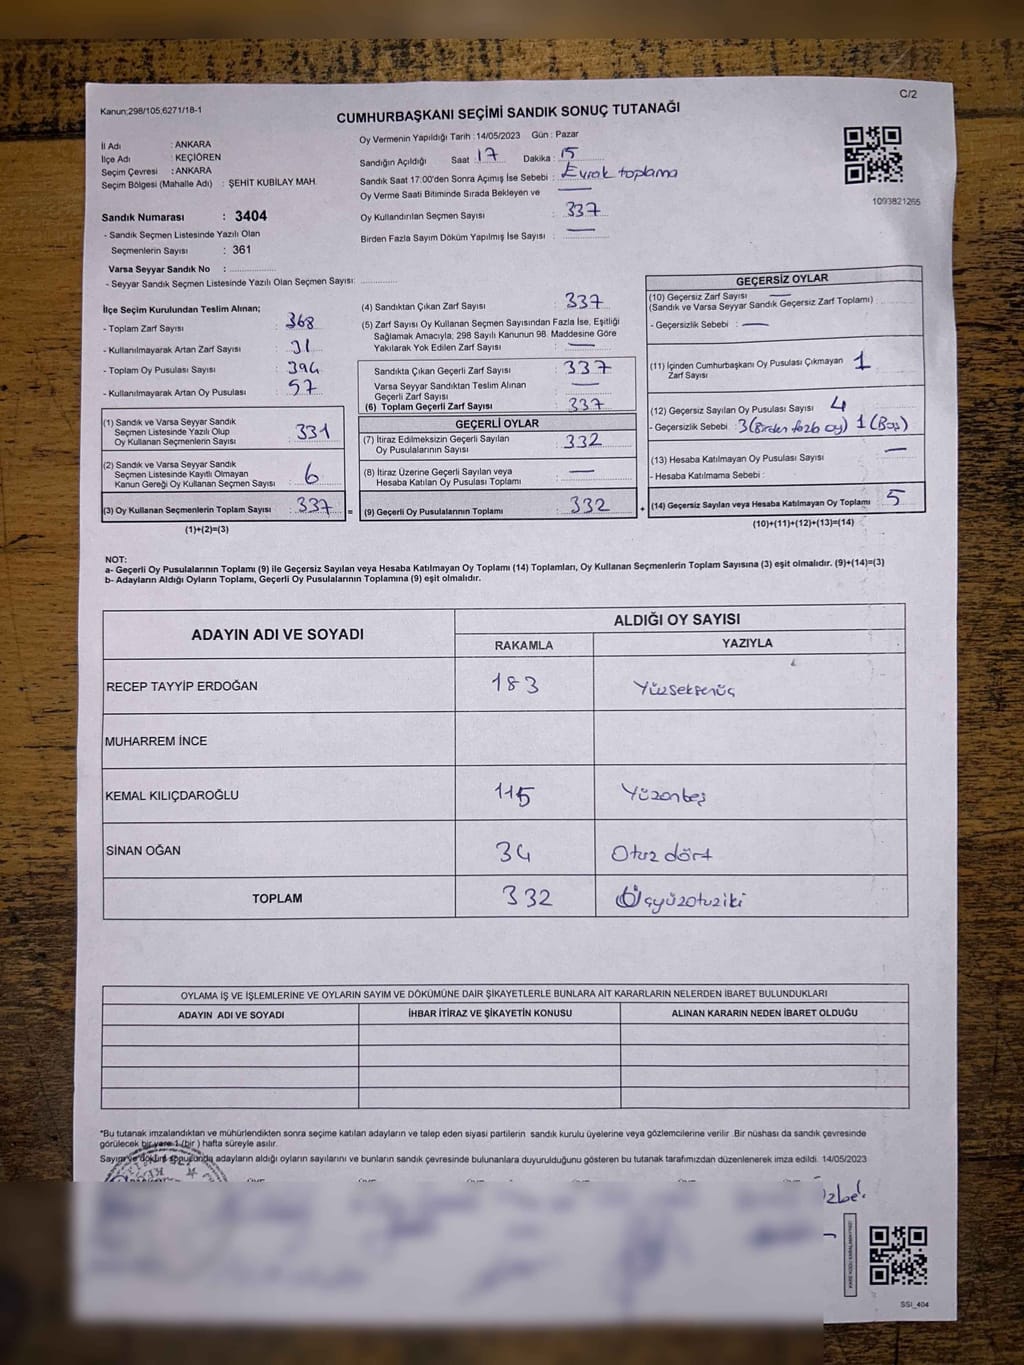 Kanun;298/105;6271/18-1
C/2
CUMHURBAŞKANI SEÇİMİ SANDIK SONUÇ TUTANAĞI
İl Adı : ANKARA
İlçe Adı : KEÇİÖREN
Seçim Çevresi : ANKARA
Seçim Bölgesi (Mahalle Adı) : ŞEHİT KUBİLAY MAH.
Sandık Numarası : 3404
- Sandık Seçmen Listesinde Yazılı Olan
Seçmenlerin Sayısı : 361
Varsa Seyyar Sandık No :
- Seyyar Sandık Seçmen Listesinde Yazılı Olan Seçmen Sayısı:
Oy Vermenin Yapıldığı Tarih : 14/05/2023 Gün : Pazar
Sandığın Açıldığı Saat : 17 Dakika : 15
Sandık Saat 17:00'den Sonra Açımış İse Sebebi : Evrak toplama
Oy Verme Saati Bitiminde Sırada Bekleyen ve : —
Oy Kullandırılan Seçmen Sayısı : 337
Birden Fazla Sayım Döküm Yapılmış İse Sayısı : —
1093821265
İlçe Seçim Kurulundan Teslim Alınan;
- Toplam Zarf Sayısı : 368
- Kullanılmayarak Artan Zarf Sayısı : 31
- Toplam Oy Pusulası Sayısı : 394
- Kullanılmayarak Artan Oy Pusulası : 57
(1) Sandık ve Varsa Seyyar Sandık
Seçmen Listesinde Yazılı Olup
Oy Kullanan Seçmenlerin Sayısı : 331
(2) Sandık ve Varsa Seyyar Sandık
Seçmen Listesinde Kayıtlı Olmayan
Kanun Gereği Oy Kullanan Seçmen Sayısı : 6
(3) Oy Kullanan Seçmenlerin Toplam Sayısı : 337 =
(1)+(2)=(3)
(4) Sandıktan Çıkan Zarf Sayısı : 337
(5) Zarf Sayısı Oy Kullanan Seçmen Sayısından Fazla İse, Eşitliği
Sağlamak Amacıyla; 298 Sayılı Kanunun 98. Maddesine Göre
Yakılarak Yok Edilen Zarf Sayısı : —
Sandıkta Çıkan Geçerli Zarf Sayısı : 337
Varsa Seyyar Sandıktan Teslim Alınan
Geçerli Zarf Sayısı : —
(6) Toplam Geçerli Zarf Sayısı : 337
GEÇERLİ OYLAR
(7) İtiraz Edilmeksizin Geçerli Sayılan
Oy Pusulalarının Sayısı : 332
(8) İtiraz Üzerine Geçerli Sayılan veya
Hesaba Katılan Oy Pusulası Toplamı : —
(9) Geçerli Oy Pusulalarının Toplamı : 332 +
GEÇERSİZ OYLAR
(10) Geçersiz Zarf Sayısı —
(Sandık ve Varsa Seyyar Sandık Geçersiz Zarf Toplamı) :
- Geçersizlik Sebebi : —
(11) İçinden Cumhurbaşkanı Oy Pusulası Çıkmayan : 1
Zarf Sayısı
(12) Geçersiz Sayılan Oy Pusulası Sayısı : 4
- Geçersizlik Sebebi : 3(Birden fazla oy) 1(Boş)
(13) Hesaba Katılmayan Oy Pusulası Sayısı : —
- Hesaba Katılmama Sebebi :
(14) Geçersiz Sayılan veya Hesaba Katılmayan Oy Toplamı : 5
(10)+(11)+(12)+(13)=(14)
NOT:
a- Geçerli Oy Pusulalarının Toplamı (9) ile Geçersiz Sayılan veya Hesaba Katılmayan Oy Toplamı (14) Toplamları, Oy Kullanan Seçmenlerin Toplam Sayısına (3) eşit olmalıdır. (9)+(14)=(3)
b- Adayların Aldığı Oyların Toplamı, Geçerli Oy Pusulalarının Toplamına (9) eşit olmalıdır.
ADAYIN ADI VE SOYADI
ALDIĞI OY SAYISI
RAKAMLA YAZIYLA
RECEP TAYYİP ERDOĞAN 183 Yüzseksenüç
MUHARREM İNCE
KEMAL KILIÇDAROĞLU 115 Yüzonbeş
SİNAN OĞAN 34 Otuz dört
TOPLAM 332 Üçyüzotuziki
OYLAMA İŞ VE İŞLEMLERİNE VE OYLARIN SAYIM VE DÖKÜMÜNE DAİR ŞİKAYETLERLE BUNLARA AİT KARARLARIN NELERDEN İBARET BULUNDUKLARI
ADAYIN ADI VE SOYADI İHBAR İTİRAZ VE ŞİKAYETİN KONUSU ALINAN KARARIN NEDEN İBARET OLDUĞU
*Bu tutanak imzalandıktan ve mühürlendikten sonra seçime katılan adayların ve talep eden siyasi partilerin sandık kurulu üyelerine veya gözlemcilerine verilir .Bir nüshası da sandık çevresinde
görülecek bir yere 1 (bir ) hafta süreyle asılır.
Sayım ve döküm sonucunda adayların aldığı oyların sayılarını ve bunların sandık çevresinde bulunanlara duyurulduğunu gösteren bu tutanak tarafımızdan düzenlenerek imza edildi. 14/05/2023
SSI_404